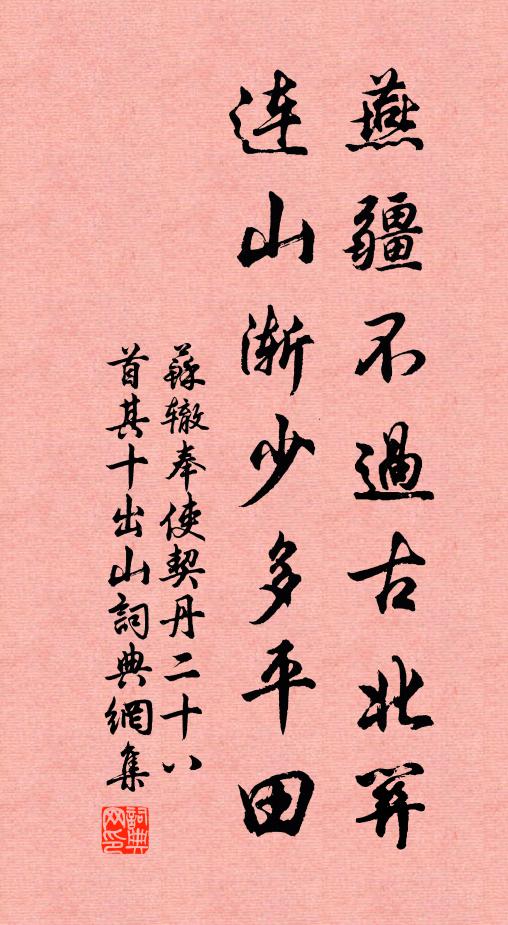 燕疆不過古北關
連山漸少多平田
蘇轍奉使契丹二十八
首其十出山詞典網集
詞典
网印